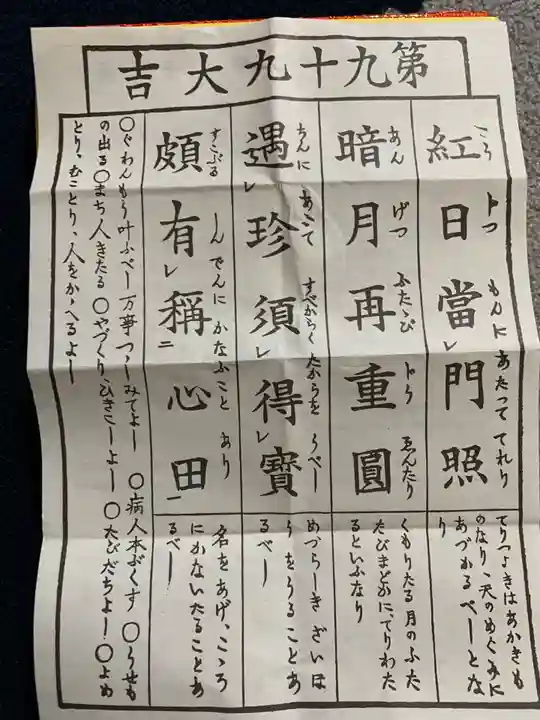 第九十九大吉
紅日當レ門照
こうじつもんにあたっててれり
てりつよきはあかきも
のなり、天のめぐみに
あづかるべしとな
り
暗月再重圓
あんげつふたゝびゑんたり
くもりたる月のふた
たびまどかに、てりわた
るといふなり
遇レ珍須レ得レ寶
ちんにあふてすべからくたからをうべし
めづらしきざいほ
うをうることあ
るべし
頗有レ稱二心田一
すこぶるしんでんにかなふことあり
名をあげ、こゝろ
にかないたることあ
るべし
〇ぐわんもう叶ふべし万事つゝしみてよし 〇病人本ぶくす 〇うせも
の出る〇まち人きたる 〇やづくり、ひきこしよし 〇たびだちよし!〇よめ
とり、むことり、人をかゝへるよし